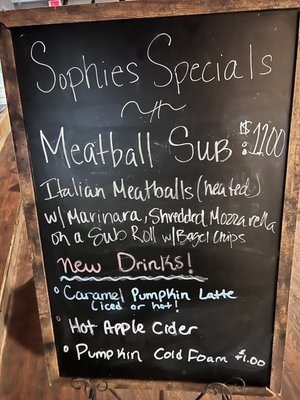 Sophies Specials
Meatball Sub : $12.00
Italian Meatballs (heated)
w/ Marinara, Shredded Mozzarella
on a Sub Roll w/ Bagel Chips
New Drinks!
Caramel Pumpkin Latte
(iced or hot!)
Hot Apple Cider
Pumpkin Cold Foam +1.00